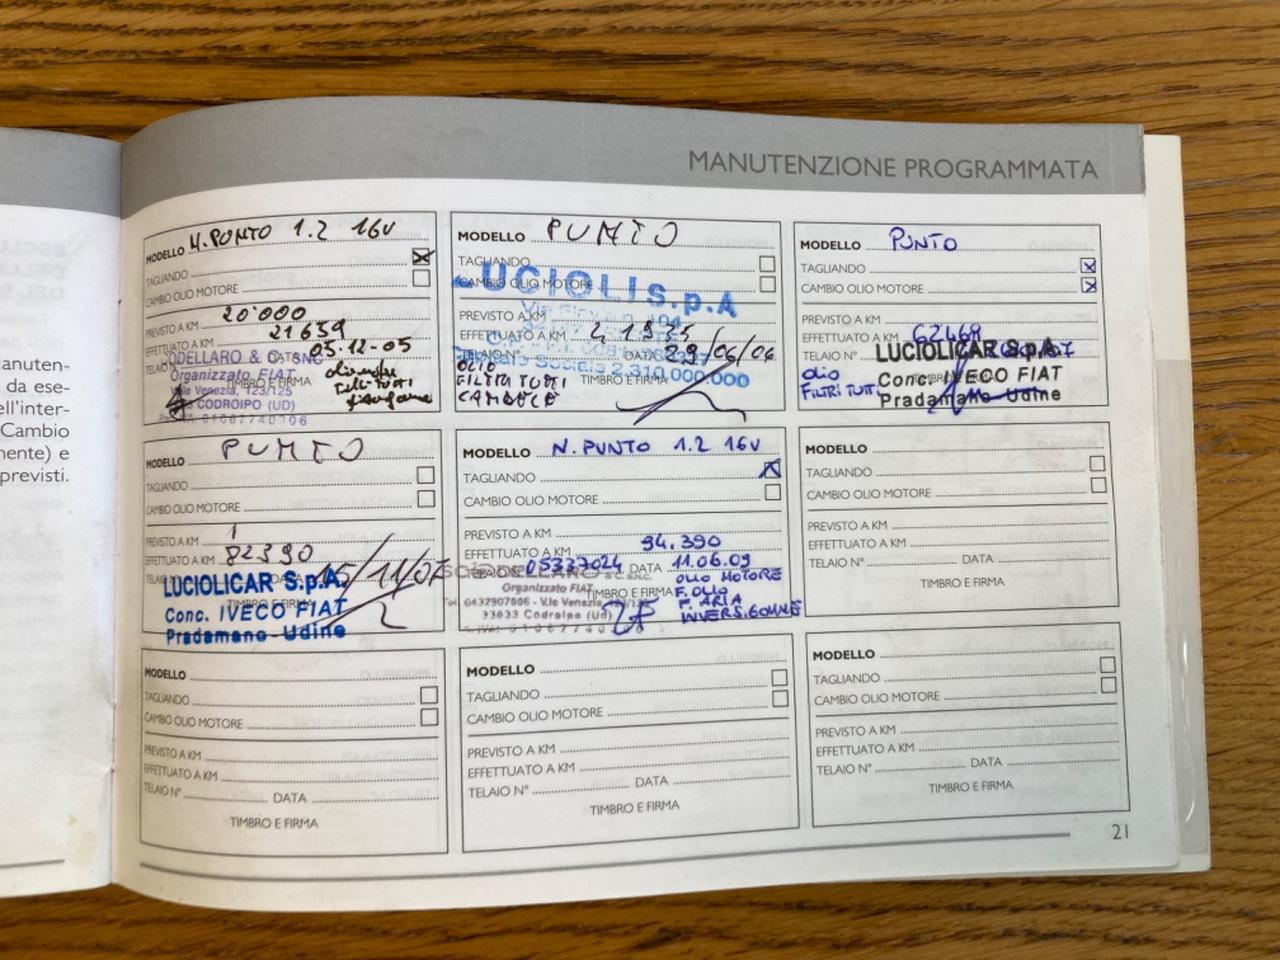 MANUTENZIONE PROGRAMMATA
anuten-
da ese-
ell'inter-
Cambio
nente) e
previsti.
MODELLO N. PUNTO 1.2 16V
TAGLIANDO
CAMBIO OLIO MOTORE
PREVISTO A KM 20'000
EFFETTUATO A KM 21659
TELAIO N° DATA 05-12-05
ODELLARO & C. SNC
Organizzato FIAT
TIMBRO E FIRMA
V.le Venezia, 123/125
CODROIPO (UD)
MODELLO PUNTO
TAGLIANDO
CAMBIO OLIO MOTORE
LUCIOLI s.p.A
PREVISTO A KM
EFFETTUATO A KM
TELAIO N° DATA 29/06/06
Sociale 2.310.000.000
OLIO
FILTRI TUTTI
CANDELE
TIMBRO E FIRMA
MODELLO PUNTO
TAGLIANDO
CAMBIO OLIO MOTORE
PREVISTO A KM
EFFETTUATO A KM 62469
TELAIO N°
LUCIOLICAR S.p.A.
Conc. IVECO FIAT
Pradamano - Udine
OLIO
FILTRI TUTTI
MODELLO PUNTO
TAGLIANDO
CAMBIO OLIO MOTORE
PREVISTO A KM
EFFETTUATO A KM 82390
15/11/07
LUCIOLICAR S.p.A.
TIMBRO E FIRMA
Conc. IVECO FIAT
Pradamano - Udine
MODELLO N. PUNTO 1.2 16V
TAGLIANDO
CAMBIO OLIO MOTORE
PREVISTO A KM
EFFETTUATO A KM 94.390
TELAIO N° 05337024 DATA 11.06.09
Organizzato FIAT
TIMBRO E FIRMA
Tel. 0432907006 - V.le Venezia
33033 Codroipo (Ud)
OLIO MOTORE
F. OLIO
F. ARIA
INVERS. GOMME
MODELLO
TAGLIANDO
CAMBIO OLIO MOTORE
PREVISTO A KM
EFFETTUATO A KM
TELAIO N° DATA
TIMBRO E FIRMA
MODELLO
TAGLIANDO
CAMBIO OLIO MOTORE
PREVISTO A KM
EFFETTUATO A KM
TELAIO N° DATA
TIMBRO E FIRMA
MODELLO
TAGLIANDO
CAMBIO OLIO MOTORE
PREVISTO A KM
EFFETTUATO A KM
TELAIO N° DATA
TIMBRO E FIRMA
MODELLO
TAGLIANDO
CAMBIO OLIO MOTORE
PREVISTO A KM
EFFETTUATO A KM
TELAIO N° DATA
TIMBRO E FIRMA
21